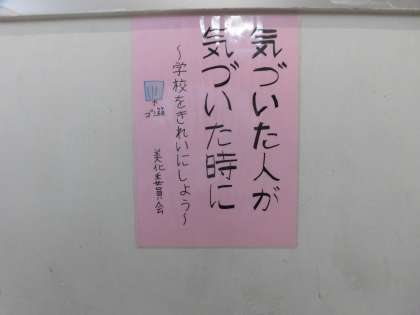 気づいた人が
気づいた時に
〜学校をきれいにしよう〜
ゴミ箱
美化委員会